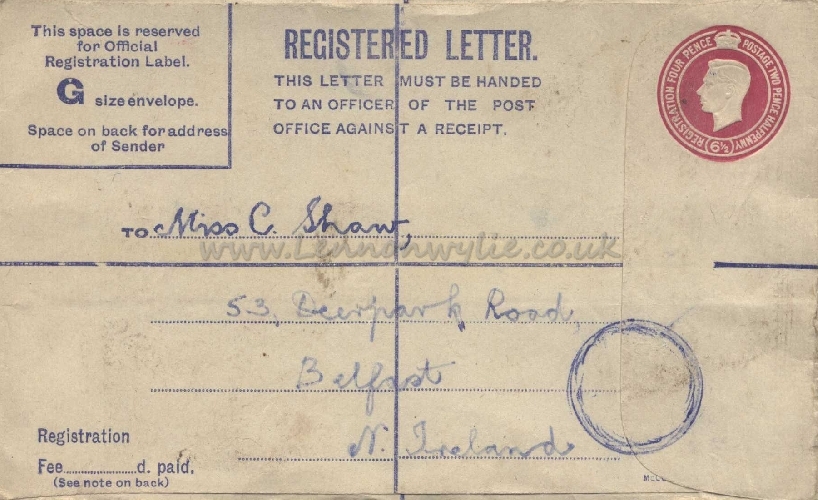 This space is reserved
for Official
Registration Label.
G size envelope.
Space on back for address
of Sender
REGISTERED LETTER.
THIS LETTER MUST BE HANDED
TO AN OFFICER OF THE POST
OFFICE AGAINST A RECEIPT.
REGISTRATION FOUR PENCE POSTAGE TWO PENCE HALFPENNY
(6½)
TO Miss C. Shaw,
www.Lennonwylie.co.uk
53, Deerpark Road,
Belfast
N. Ireland
Registration
Fee............d. paid.
(See note on back)